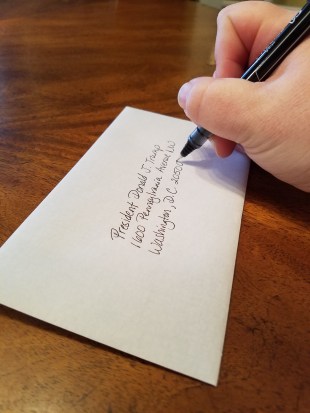 President Donald J. Trump
1600 Pennsylvania Avenue NW
Washington, D.C. 20500